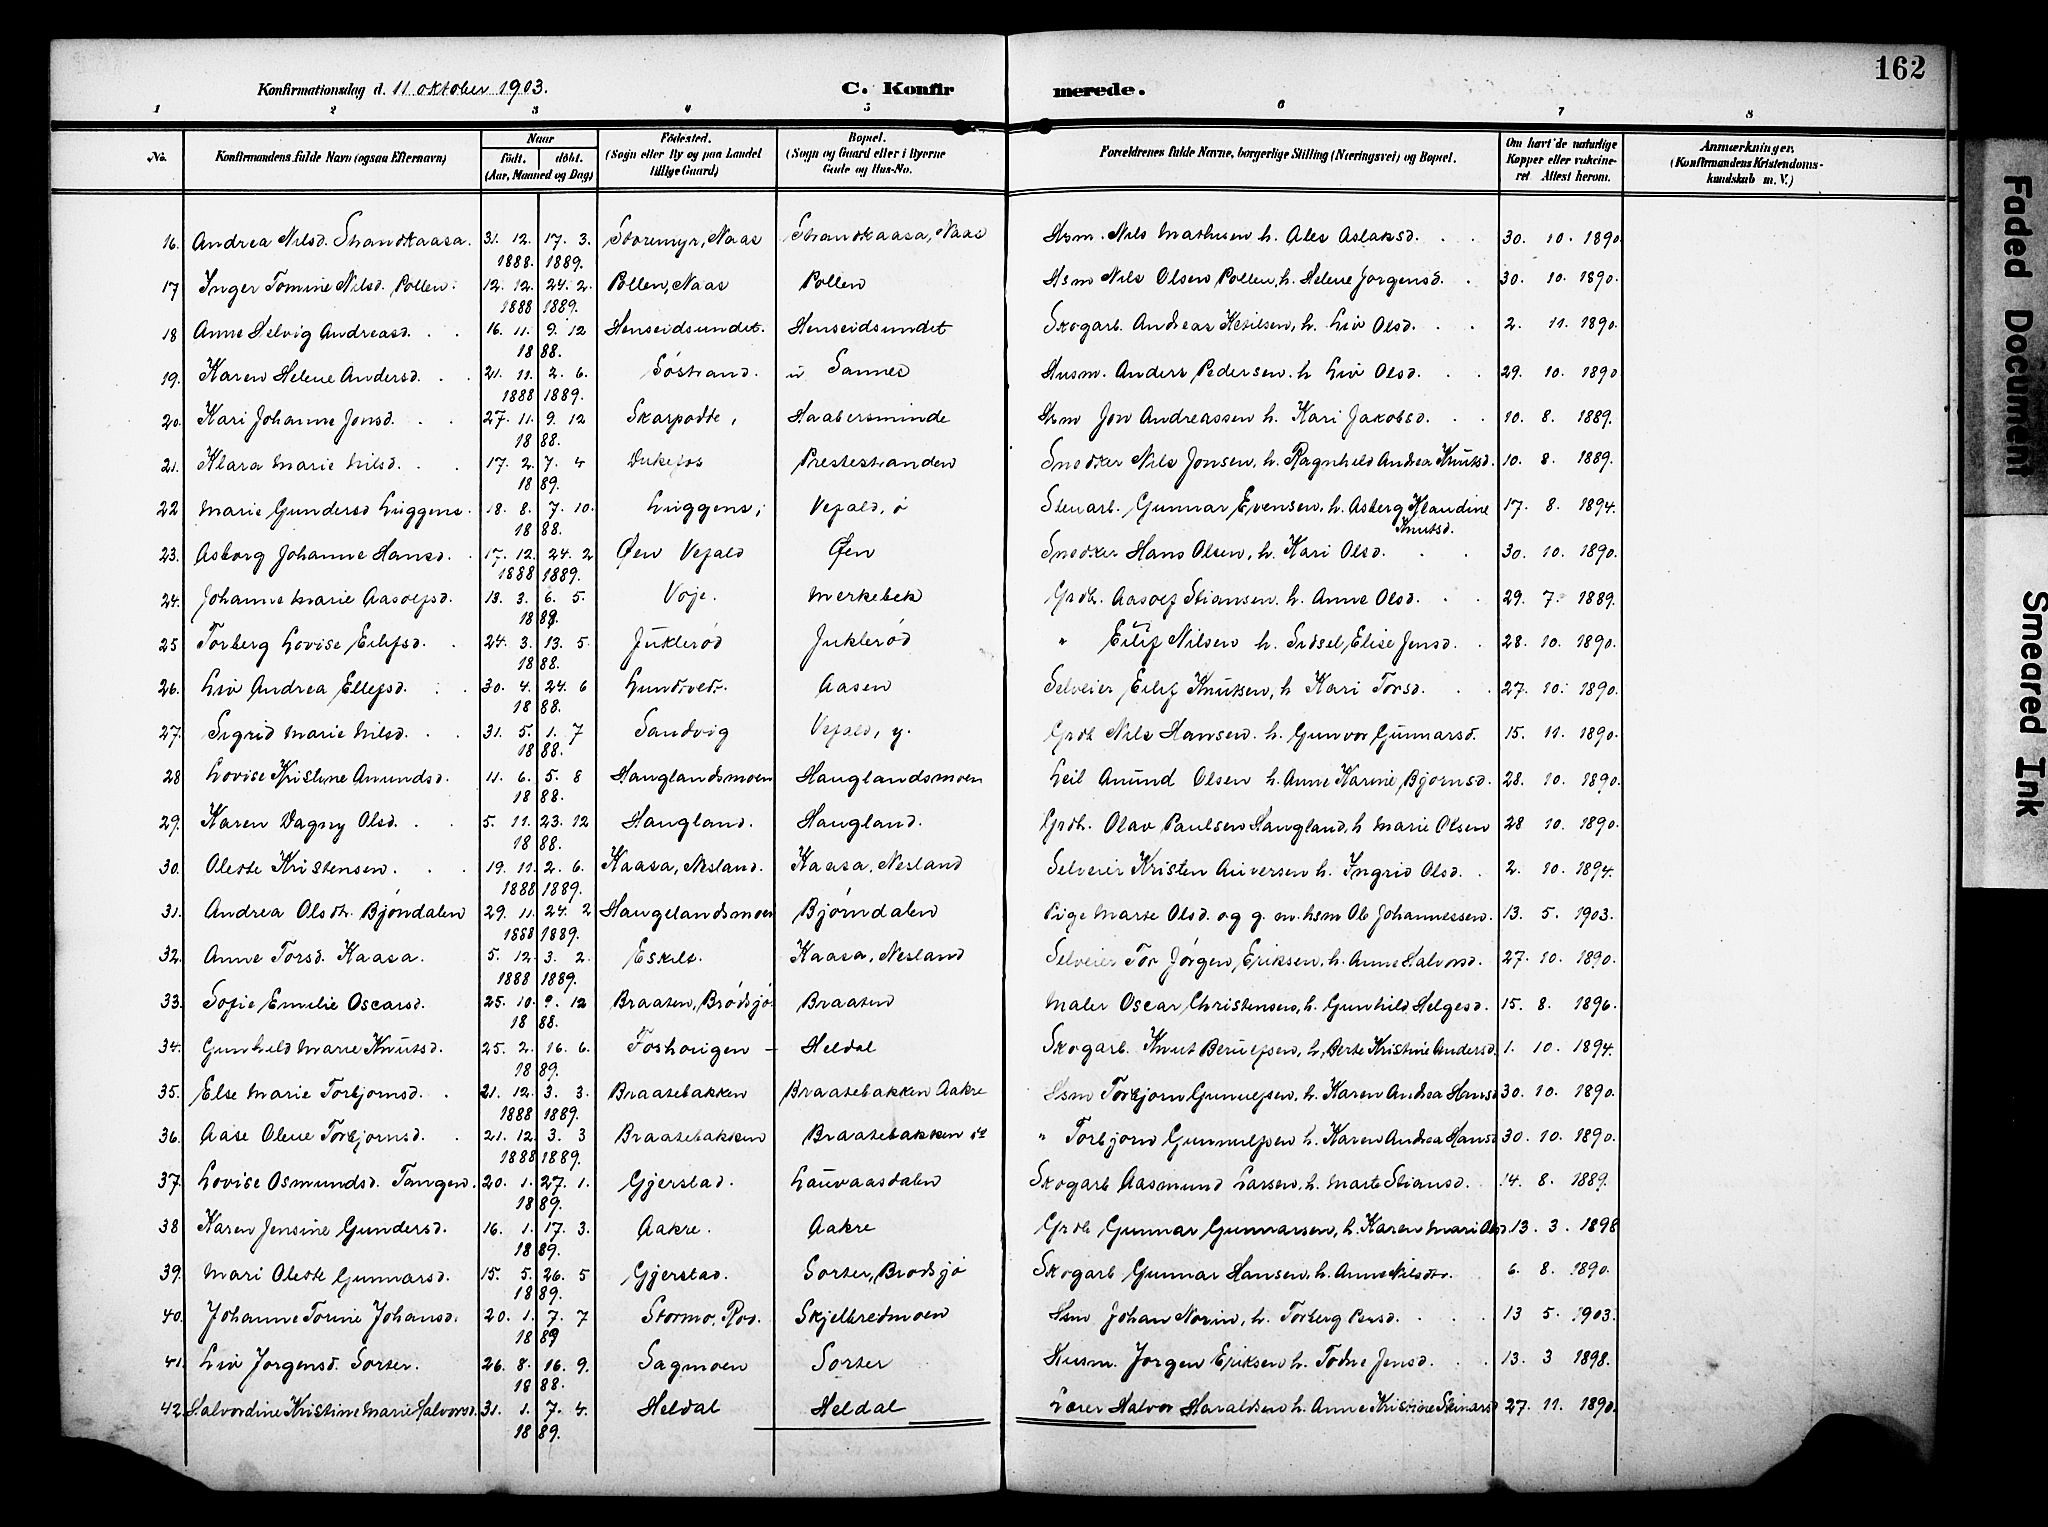 162
Konfirmationsdag d. 11 oktober 1903.
C. Konfirmerede.
1 2 3 4 5 6 7 8
No. Konfirmandens fulde Navn (ogsaa Efternavn) Naar født. døbt. (Aar, Maaned og Dag) Fødested. (Sogn eller By og paa Landet tillige Gaard) Bopæl. (Sogn og Gaard eller i Byerne Gade og Hus-No. Forældrenes fulde Navne, borgerlige Stilling (Næringsvei) og Bopæl. Om havt de naturlige Kopper eller vakcineret Attest herom. Anmærkninger. (Konfirmandens Kristendomskundskab m. V.)
16. Andrea Nilsd. Strandkaasa. 31. 12. 1888. 17. 3. 1889. Storemyr, Naas Strandkaasa, Naas Hsm. Nils Mathisen h. Ales Aslaksd. 30. 10. 1890.
17 Inger Tomine Nilsd. Pollen. 12. 12. 1888 24. 2. 1889. Pollen, Naas Pollen Hsm Nils Olsen Pollen, h. Helene Jorgensd. 30. 10. 1890.
18 Anne Helvig Andreasd. 16. 11. 9. 12 1888. Henseidsundet. Henseidsundet Skogarb. Andreas Ketilsen, h. Liv Olsd. 2. 11. 1890.
19. Karen Helene Andersd. 21. 11. 1888 2. 6. 1889. Søstrand. Sannes Husm. Anders Pedersen. h Liv Olsd. 29. 10. 1890
20. Kari Johanne Jonsd. 27. 11. 9. 12 1888. Skarpodde, Haabersminde Hsm Jon Andreassen h. Kari Jakobsd. 10. 8. 1889.
21. Klara Marie Nilsd. 17. 2. 7. 4 1889. Dukefos Prestestranden Snedker Nils Jonsen, h. Ragnhild Andrea Knutsd. 10. 8. 1889.
22 Marie Gundersd Luggens. 18. 8. 7. 10. 1888. Luggens, Vefald, ø Stenarb. Gunnar Evensen, h. Asberg Klaudine Knutsd. 17. 8. 1894.
23. Asborg Johanne Hansd. 17. 12. 1888 24. 2 1889. Øen Vefald Øen Snedker Hans Olsen, h. Kari Olsd. 30. 10. 1890.
24. Johanne Marie Aasolfsd. 13. 3. 6. 5. 1889. Voje. Merkebek Grdb. Aasolf Stiansen. h. Anne Olsd. 29. 7. 1889.
25 Torberg Lovise Eilifsd. 24. 3. 13. 5. 1888. Juklerød Juklerød " Eilif Nilsen h. Sidsel, Elise Jensd. 28. 10. 1890.
26. Liv Andrea Ellefsd. 30. 4. 24. 6 1888. Aasen Selveier Eilif Knutsen, h Kari Torsd. 27. 10. 1890.
27. Sigrid Marie Nilsd. 31. 5. 1. 7 1888. Sandvig Vefald, y. Grdb Nils Hansen. h. Gunvor Gunnarsd. 15. 11. 1890.
28 Lovise Kristine Amundsd. 11. 6. 5. 8 1888. Hauglandsmoen Hauglandsmoen Leil Amund Olsen h. Anne Karine Bjornsd. 28. 10. 1890.
29. Karen Dagny Olsd. 5. 11. 23. 12 1888. Haugland. Haugland. Grdb. Olav Paulsen Haugland, h Marie Olsen 28 10. 1890.
30. Oleste Kristensen. 19. 11. 1888 2. 6. 1889. Kaasa, Nesland. Kaasa, Nesland Selveier Kristen Aiversen h. Ingrid Olsd. 2. 10. 1894.
31. Andrea Olsdtr. Bjøndalen 29. 11. 1888 24. 2 1889. Haugelandsmoen Bjørndalen Pige Marte Olsd. og g. m. hsm Ole Johannessen. 13. 5. 1903.
32. Anne Torsd. Kaasa. 5. 12. 1888 3. 2. 1889. Eskils. Kaasa, Nesland Selveier Tor Jørgen Eriksen, h. Anne Halvorsd. 27. 10. 1890.
33. Sofie Emilie Oscarsd. 25. 10. 9. 12 1888. Braaten, Brødsjø Braaten Maler Oscar Christensen, h. Gunhild Helgesd. 15. 8. 1896.
34. Gunhild Marie Knutsd. 25. 2. 16. 6. 1889. Foshougen Heldal Skogarb. Knut Berulfsen, h, Berte Kristine Andersd. 1. 10. 1894.
35. Else Marie Torbjornsd. 21. 12. 1888 3. 3. 1889. Braatebakken Braatebakken Aakre Hsm Torbjorn Gunnulfsen, h. Karen Andrea Hansd 30. 10. 1890.
36. Aase Olene Torbjornsd. 21. 12. 1888 3. 3 1889. Braatebakken Braatebakken " Torbjorn Gunnulfsen h. Karen Andrea Hansd 30. 10. 1890.
37. Lovise Osmundsd. Tangen. 20. 1. 27. 1. 1889. Gjerstad. Lauvaasdalen Skogarb Aasmund Larsen, h. Marte Stiansd. 14. 8. 1889.
38 Karen Jensine Gundersd. 16. 1. 17. 3. 1889. Aakre. Aakre Grdb Gunnar Gunnarsen, h. Karen Mari Olsd 13. 3. 1898
39. Mari Oleste Gunnarsd. 15. 5. 26. 5 1889. Gjerstad. Sorter, Brodsjo Skogarb Gunnar Hansen, h. Anne Nilsdtr. 6. 8. 1890.
40. Johanne Torine Johansd. 20. 1. 7. 7 1889 Stormo, Rod. Skjelbredmoen Hsm Johan Norin, h. Torberg Persd. 13 5. 1903.
41. Liv Jorgensd. Sorter. 26. 8. 16. 9. 1888. Sagmoen Sorter Husm. Jorgen Eriksen h. Todne Jensd. 13. 3 1898.
42. Halvordine Kristine Marie Halvorsd. 31. 1. 7. 4. 1889. Heldal Heldal Lærer Halvor Haraldsen h. Anne Kristine Steinarsd 27. 11. 1890.
Faded Document
Smeared Ink